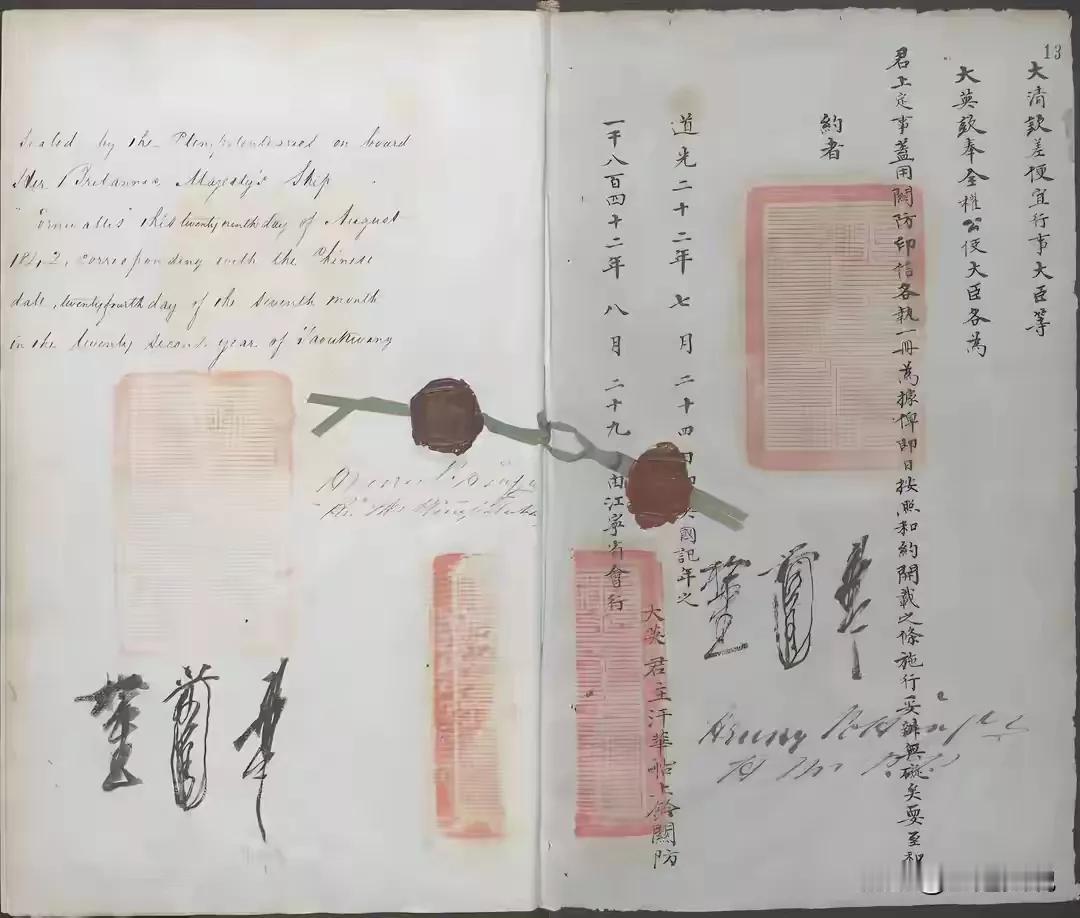 Sealed by the Plenipotentiaries on board
Her Britannic Majesty's Ship
this twenty ninth day of August
1842, corresponding with the Chinese
date, twenty fourth day of the seventh month
in the twenty second year of Taoukwang
13
大清欽差便宜行事大臣等
大英欽奉全權公使大臣各為
君上定事蓋用關防印信各執一冊為據俾即日按照和約開載之條施行妥辦無礙矣要至和
約者
道光二十二年七月二十四國記年之
一千八百四十二年八月二十九由江寧省會行
大英君主汗華船上鈐關防